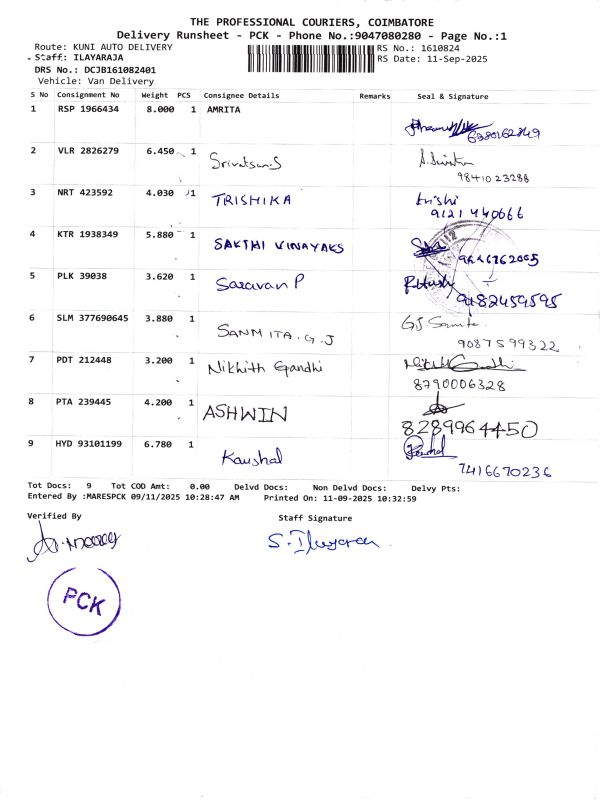 THE PROFESSIONAL COURIERS, COIMBATORE
Delivery Runsheet - PCK - Phone No.:9047080280 - Page No.:1
Route: KUNI AUTO DELIVERY RS No.: 1610824
Staff: ILAYARAJA RS Date: 11-Sep-2025
DRS No.: DCJB161082401
Vehicle: Van Delivery
S No Consignment No Weight PCS Consignee Details Remarks Seal & Signature
1 RSP 1966434 8.000 1 AMRITA
6380162849
2 VLR 2826279 6.450 1 Srivatsan.S
9841023288
3 NRT 423592 4.030 1 TRISHIKA trishi
9121440666
4 KTR 1938349 5.880 1 SAKTHI VINAYAKS
5 PLK 39038 3.620 1 Saravan P
9182459595
6 SLM 377690645 3.880 1 SANMITA.G.J G.J.
9087599322
7 PDT 212448 3.200 1 Nikhith Gandhi
8790006328
8 PTA 239445 4.200 1 ASHWIN
8289964450
9 HYD 93101199 6.780 1 Kaushal
7416670236
Tot Docs: 9 Tot COD Amt: 0.00 Delvd Docs: Non Delvd Docs: Delvy Pts:
Entered By :MARESPCK 09/11/2025 10:28:47 AM Printed On: 11-09-2025 10:32:59
Verified By Staff Signature
PCK